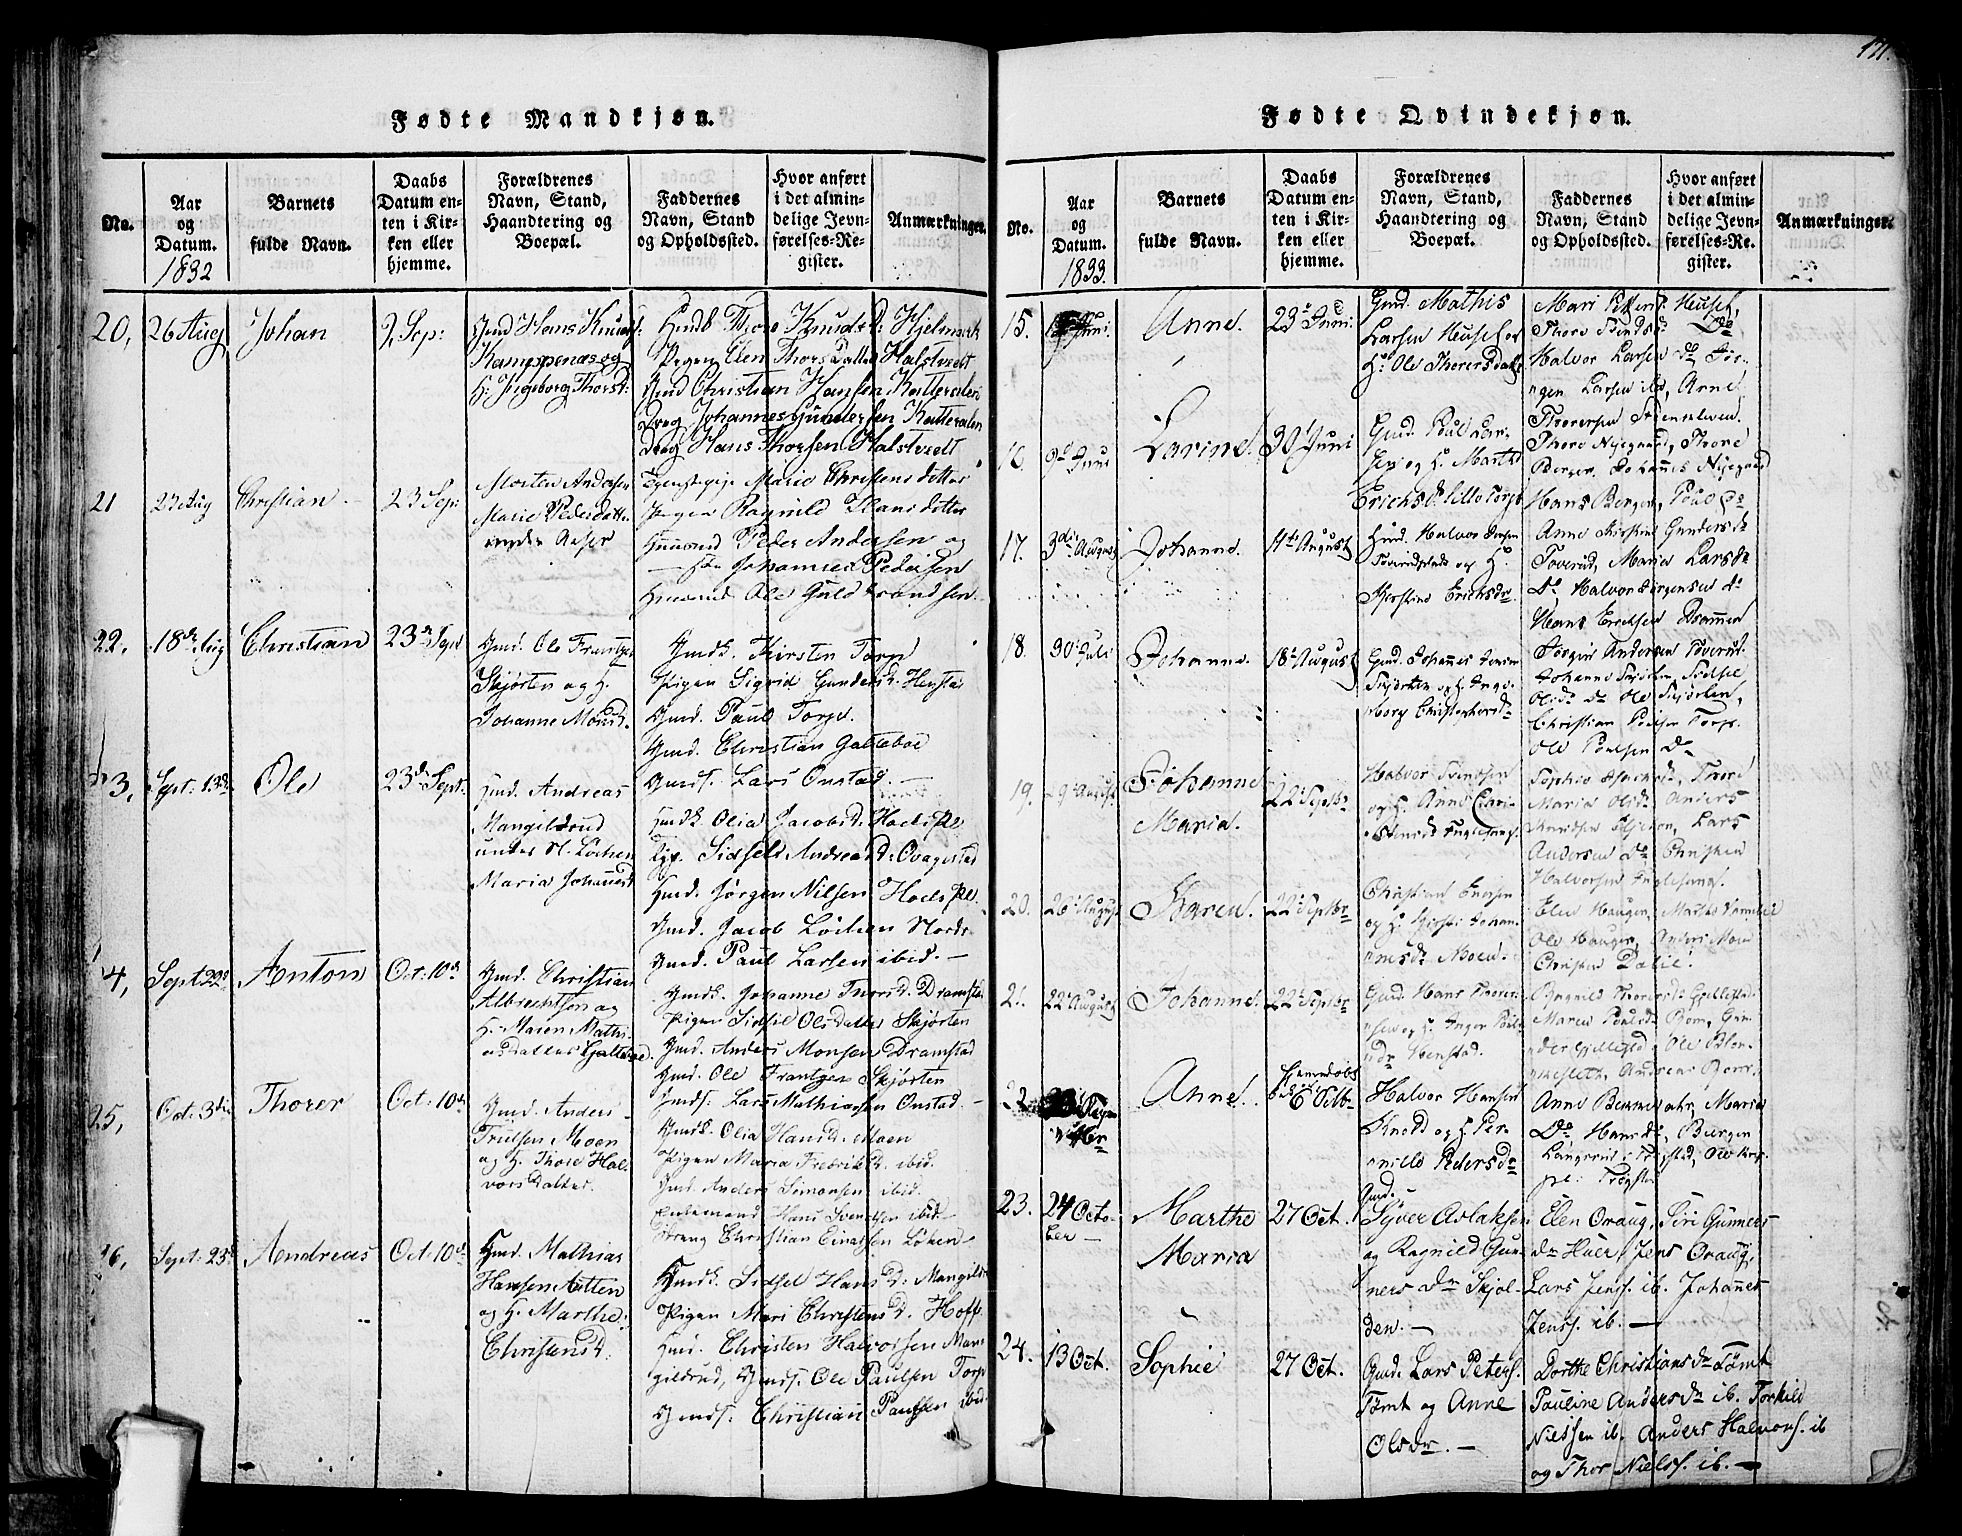 171.
Fødte Mandkjøn.
No.
Aar
og
Datum.
1832
Barnets
fulde Navn.
Daabs
Datum en-
ten i Kir-
ken eller
hjemme.
Forældrenes
Navn, Stand,
Haandtering og
Boepæl.
Faddernes
Navn, Stand
og Opholdssted.
Hvor anført
i det almin-
delige Jevn-
førelses-Re-
gister.
Anmærkninger.
20,
26 Aug
Johan
2, Sep:
Gmd Hans Knuds:
Kampenæs og
H: Ingeborg Thorsd:
Gmdk Thore Knudsd: Hjelmark
Pigen Elen Thors Datter Halstvedt
Gmd Christian Hansen Katteralen
Dreg Johannes Gundersen Katteralen
Dreg Hans Thorsen Halstvedt
21
27 Aug
Christian
23 Sep:
Morten Andersen
Marie Peders datt:
under Aaser
Tjenestepige Marie Christens dotter
Pigen Ragnild Hans dotter
Huusmd Peder Andersen og
Johannes Pedersen
Huusmd Ole Guldbrandsen
22.
18de Aug
Christian
23de Sept
Gmd. Ole Frantzen
Skjørten og H.
Johanne Monsd.
Gmdk. Kirsten Torp
Pigen Sigrid Gundersd. Henstad
Gmd. Paul Torp.
Gmd. Christian Galteboe
Gmds. Lars Onstad. —
3,
Sept: 13de
Ole
23de Sept.
Gmd. Andreas
Mangelsrud
under N. Løchen
Maria Johannesd
Gmdk. Olia Jacobsd. Hoels Pl
Pig. Sidsel Andreasd: Ovagestad
Gmd. Jørgen Nilsen Hoels Pl.
Gmd. Jacob Løchen Nordr.
Gmd. Paul Larsen ibid. —
4,
Sept 22de
Anton
Oct: 10de
Gmd. Christian
Albrechtsen og
H. Maren Mathi-
asdatter Galteboe.
Gmdk. Johanne Thorsd. Dramstad
Pigen Sidsel Olsdatter Skjørten
Gmd. Anders Monsen Dramstad
Gmd. Ole Frantzen Skjørten
Gmds. Lars Mathiassen Onstad. —
25,
Oct: 3die
Thorer
Oct: 10de
Gmd. Anders
Trulsen Moen
og H. Thore Hal-
vors Datter.
Gmdk. Olia Hansd. Moen
Pigen Maria Fredriksd. ibid.
Gmd. Anders Simonsen ibid.
Enkemand Hans Svendsen ibid.
Dreng Christian Einarsen Løken
6,
Sept: 25de
Andreas
Oct: 10de
Gmd. Mathias
Hansen Aatten
og H. Marthe
Christensd.
Gmdk. Sidsel Hansd: Mangilsr
Pigen Mari Christensd. Hoff
Gmd. Christen Halvorsen Man-
gilsrud, Gmds. Ole Paulsen Torp
Gmds: Christian Paulsen ibid.
Fødte Qvindekjøn.
No.
Aar
og
Datum.
1833.
Barnets
fulde Navn.
Daabs
Datum en-
ten i Kir-
ken eller
hjemme.
Forældrenes
Navn, Stand,
Haandtering og
Boepæl.
Faddernes
Navn, Stand
og Opholdssted.
Hvor anført
i det almin-
delige Jevn-
førelses-Re-
gister.
Anmærkninger.
15.
Juni
Anne.
23de Juni
Gmd. Mathis
Larsen Heusel og
H: Ole Thorersdatt
Mari Pettersd Heusel,
Thore Svendsd Do
Halvor Larsen do Jør-
gen Larsen ibd, Arne
Thorersen Steenskleven.
16.
9de Juni
Larine.
30 Juni
Gmd. Poul Lar-
sen og H. Marthe
Erichsdr Lille Torp
Thore Nygaard, Thore
Berger, Johannes Nygaard
Hans Berger, Poul Do
17.
3die August
Johanne.
11de August
Gmd. Halvor Jørgen
Toverud og H.
Kjerstine Erichsdr.
Anne Kirstine Gundersdr
Toverud, Maria Larsdr
Do, Halvor Jørgensen do
Hans Erichsen Drammen
18.
30 Juli
Johanne.
18de August
Gmd. Johannes Jensen
Skjørten og H. Inge-
borg Christophersdr
Jørgine Andersen Toverud.
Johanne Skjørten, Sidsel
Olsdr do Ole Skjørten,
Christian Poulsen Torp.
Ole Poulsen do
19.
29de August
Johanne
Maria.
22de Septbr
Halvor Svendsen
og H. Anne Chri-
stensdr Fuglesang.
Sophie Thoresdr, Thore
Maria Olsdr Anders
Knudsen Skjetten, Lars
Andersen do Christen
Halvorsen Fuglesang.
20.
26de August
Karen.
22de Septbr
Christian Iversen
og H. Kjersti Johan-
nesdr Moen.
Elen Haugen, Marthe
Ole Haugen, Anders Moen
Christen Dalie.
21.
22de August
Johanne.
22de Septbr
Gmd. Hans Thorer-
sen og H. Inger Pouls-
dr Henstad.
Ragnild Thorersdr Gillestad
Maren Poulsdr Bøen, Gun-
der Gillestad, Ole Oslo
Andreas Bøen.
22.
Anne.
Hjemmedøbt
6 Octbr
Halvor Hansen
Knold og H. Per-
nille Pedersdr
Anne Bemme, Maria
Do Hansdr, Børgen
Langerud i Trygstad, Ole
Trøgstad
23.
24 Octo-
ber —
Marthe
Maria
27 Oct.
Gmd.
Syver Aslaksen
og Ragnild Gun-
ners dr Skjol-
den. —
Elen Oraug, Siri Gunners
dr Huer, Jens Oraug,
Lars Jenss. ib. Johannes
Jenss. ib. —
24.
13 Oct.
Sophie
27 Oct.
Gmd. Lars Peters.
Tømt og Anne
Olsdr. —
Dorthe Christiansdr Tømt
Pauline Andersdr ib. Torkild
Nielssen ib. Anders Halvors. ib
og Thor Nielss. ib. —